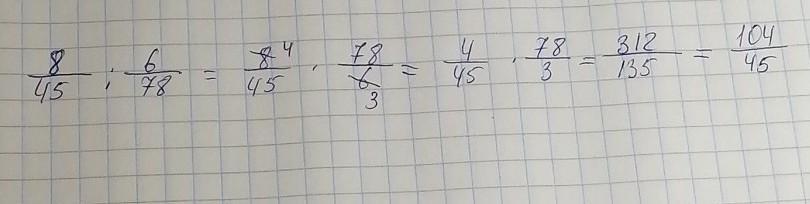 8/45 : 6/78 = 8̶ 4/45 · 78/6̶ 3 = 4/45 · 78/3 = 312/135 = 104/45